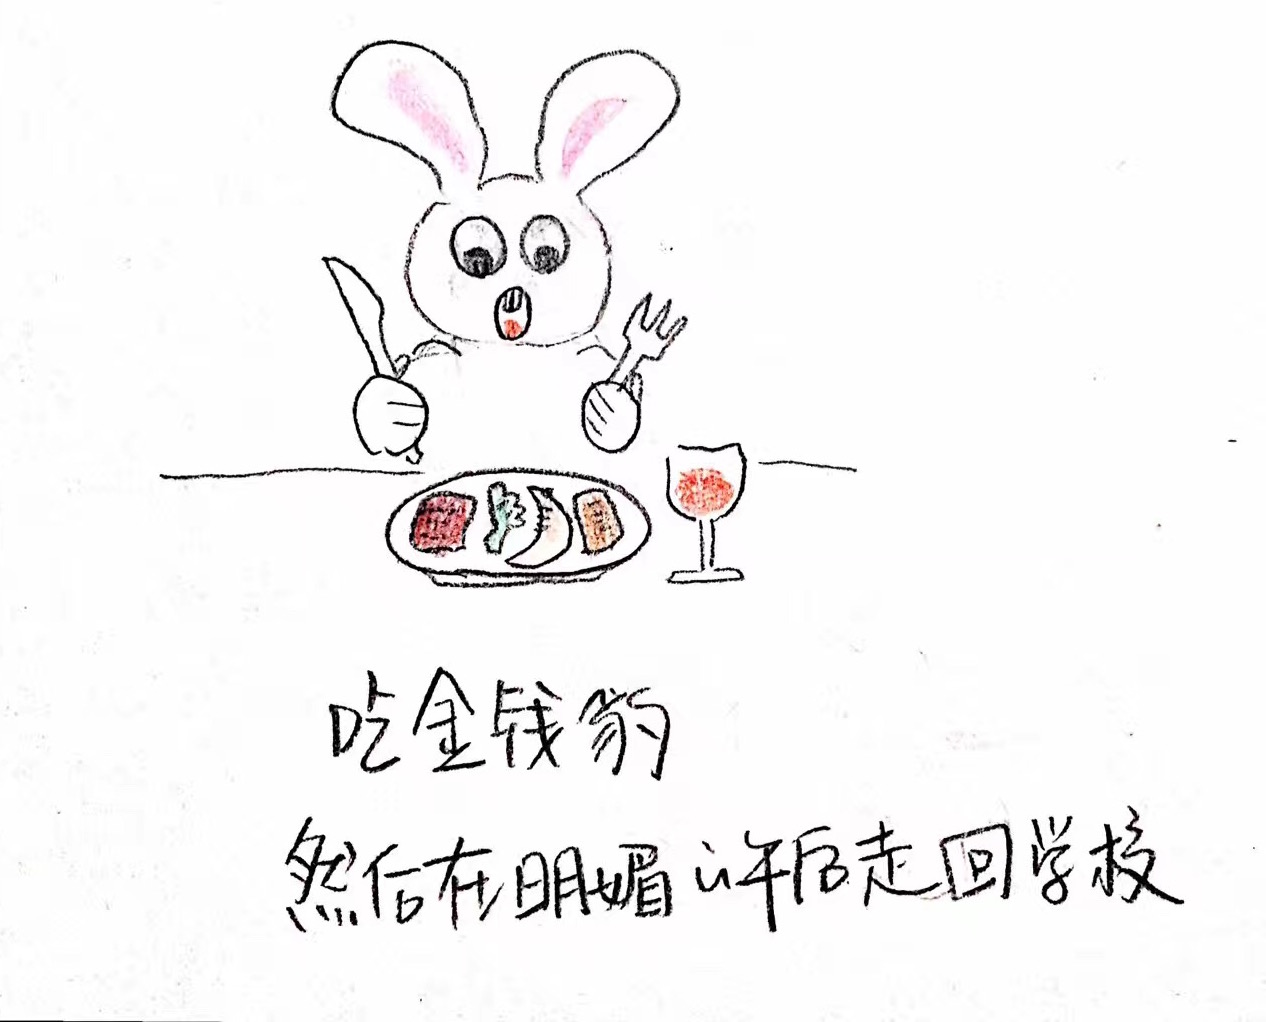 吃金钱豹
然后在明媚い午后走回学校